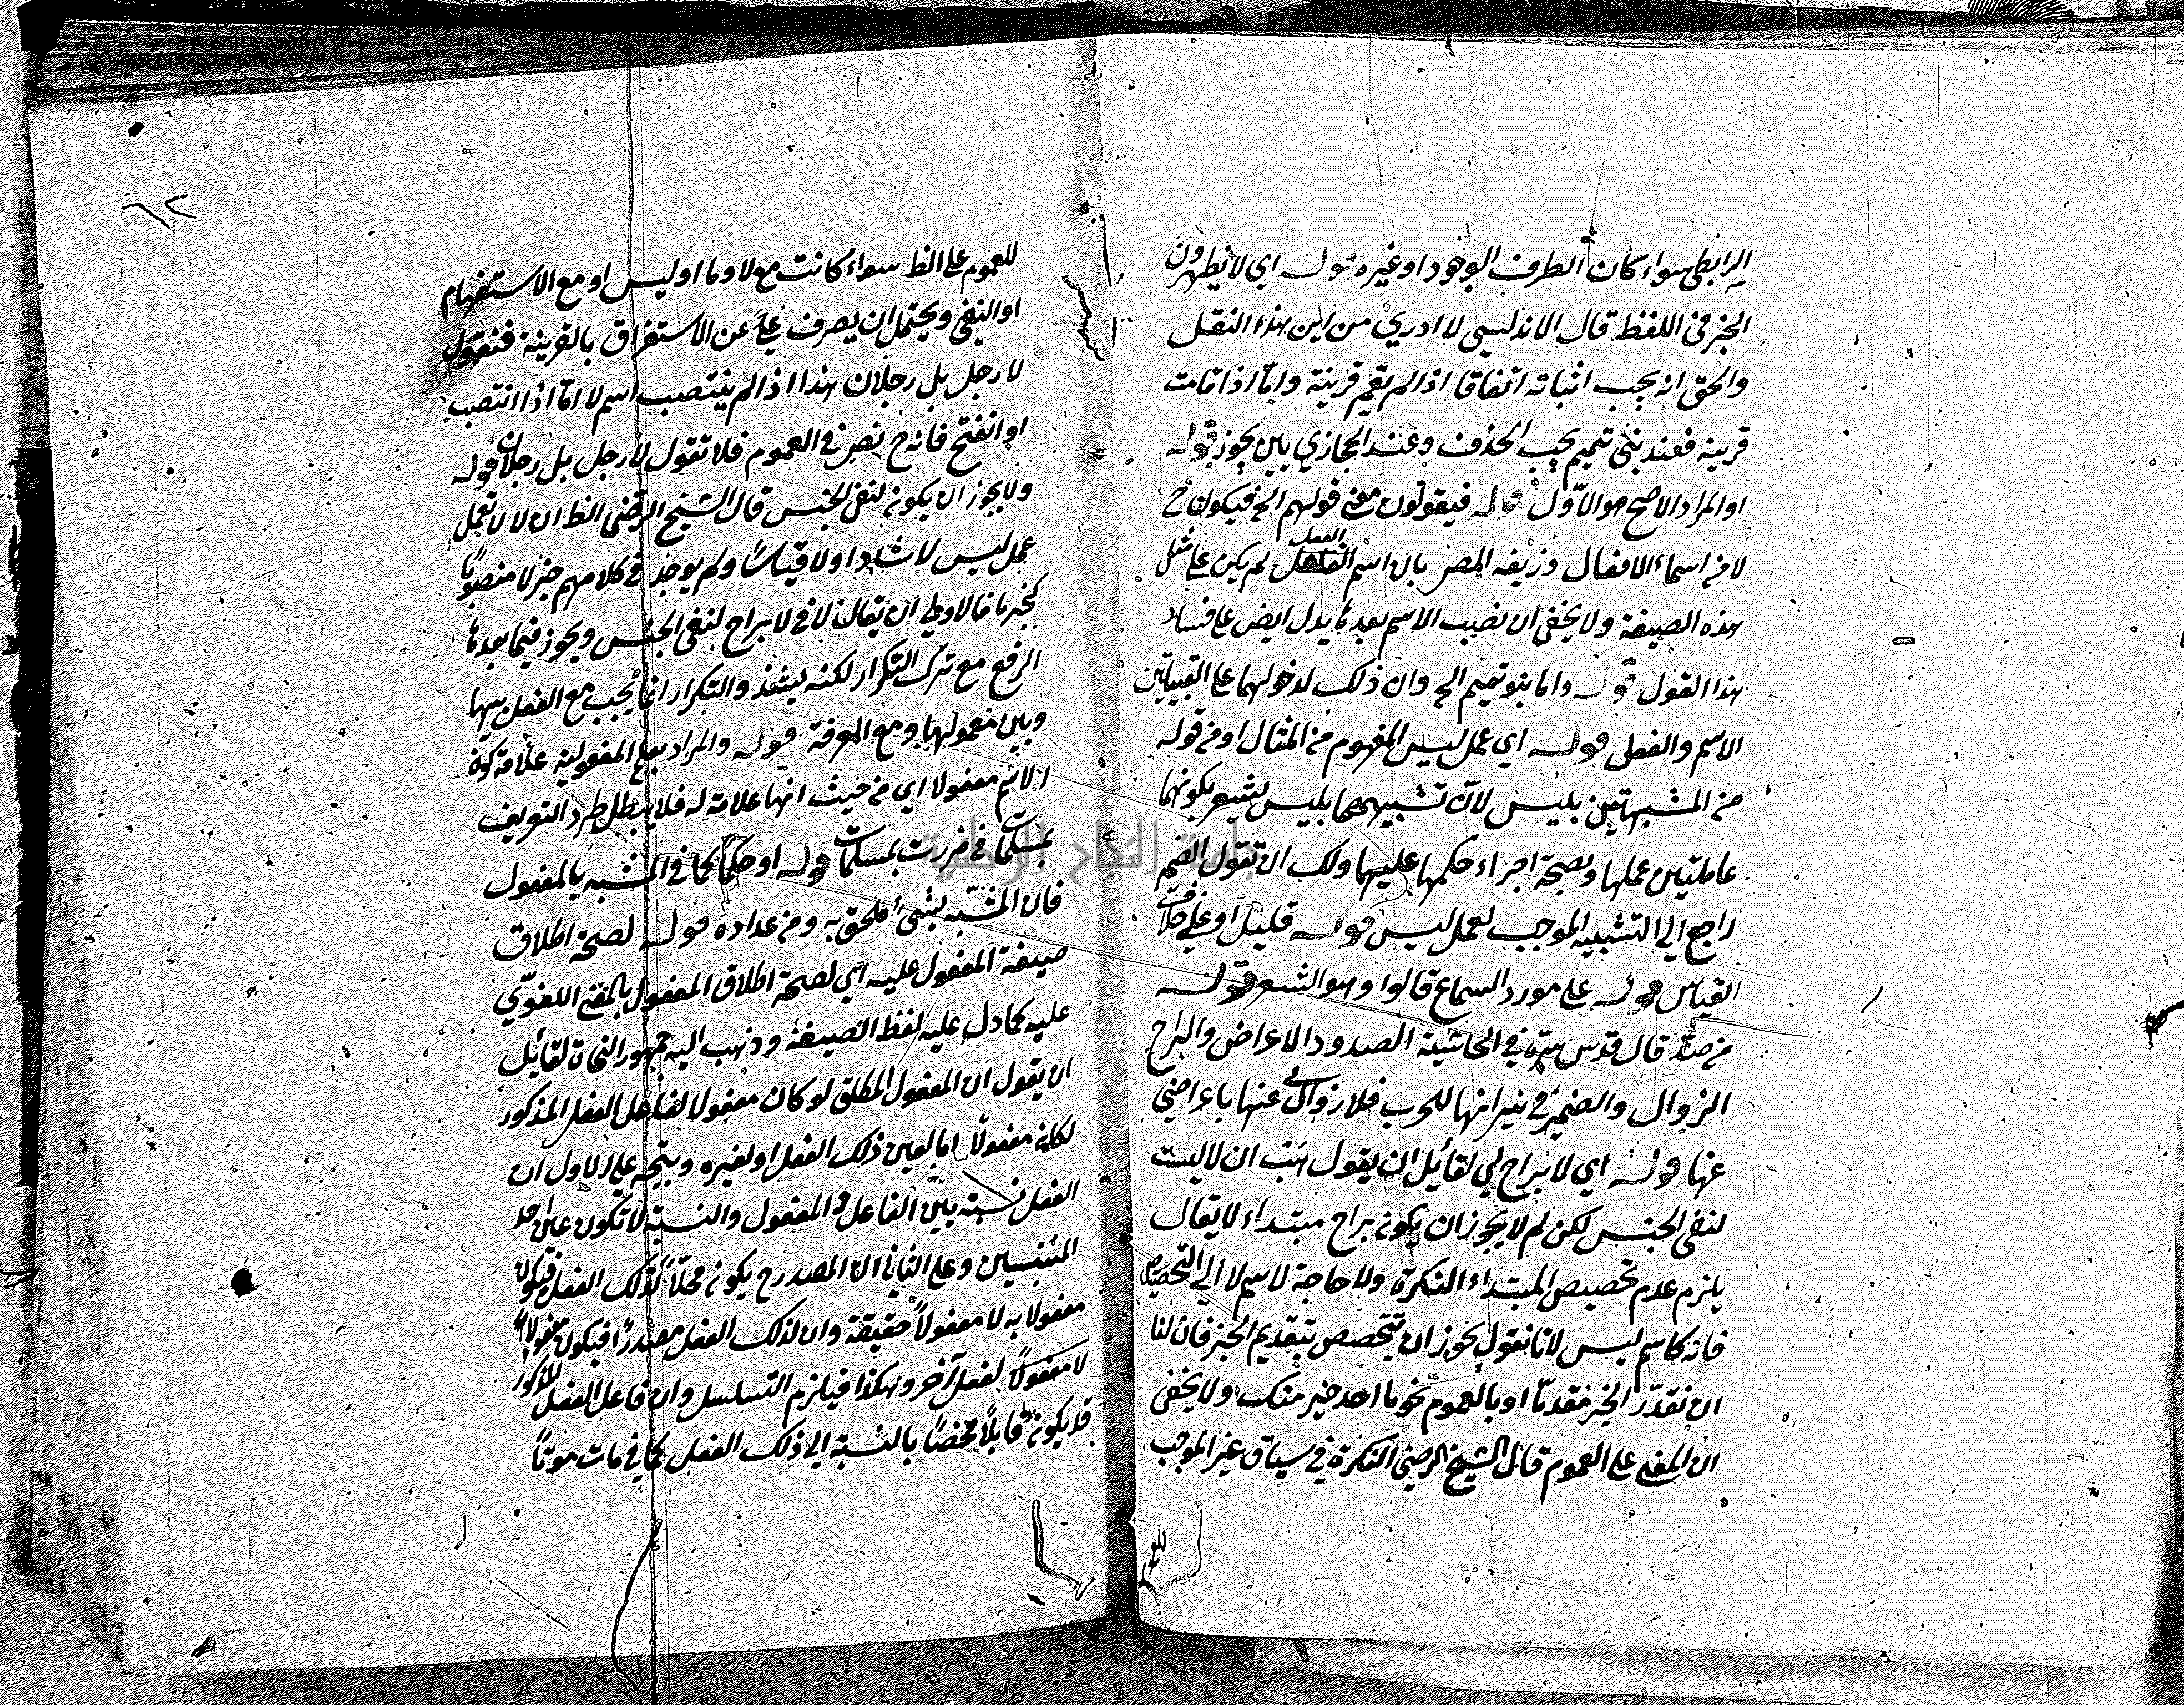 الرابطي سواء كان الطرف الوجود او غيره قوله اي لا يظهرون
الخبر في اللفظ قال الاندلسي لا ادري من اين هذا النقل
والحق انه يجب اثباته اتفاقا اذا لم يقم قرينة واما اذا قامت
قرينه فعند بني تميم يجب الحذف وعند الحجازيين يجوز قوله
او المراد الاصح هو الاول قوله فيقولون معنى قولهم الخ فيكون ح
لا من اسماء الافعال وزيفه المص بان اسم الفعل لم يكن على مثل
هذه الصيغة ولا يخفى ان نصب الاسم بعدها يدل ايض على فساد
هذا القول قوله واما بنو تميم الخ وان ذلك لدخولهما على القبيلتين
الاسم والفعل قوله اي عمل ليس المفهوم من المقال او من قوله
من المشبهتين بليس لان تشبيههما بليس يشعر بكونهما
عاملتين عملها وبصحة اجراء حكمها عليهما ولك ان تقول الضم
راجع الى التشبيه الموجب لعمل ليس قوله قليل او على خلاف
القياس قوله على مورد السماع قالوا وهو الشعر قوله
من صد قال قدس سره في الحاشية الصدود الاعراض والبراح
الزوال والضمير في نيرانها للحرب فلا زوال لي عنها باعراضي
عنها قوله اي لا براح لي لقائل ان يقول هب ان لا ليست
لنفي الجنس لكن لم لا يجوز ان يكون براح مبتداء لا يقال
يلزم عدم تخصيص المبتداء النكرة ولا حاجة لاسم لا الى التخصيص
فانه كاسم ليس لانا نقول يجوز ان يتخصص بتقديم الخبر فان لنا
ان نقدر الخبر مقدما او بالعموم نحو ما احد خير منك ولا يخفى
ان المعنى على العموم قال الشيخ الرضي النكرة في سياق غير الموجب
للعمو
٦٢
للعموم على الظ سواء كانت مع لا وما او ليس او مع الاستفهام
او النفي ويحتمل ان يصرف عن الاستغراق بالقرينة فتقول
لا رجل بل رجلان هذا اذا لم ينتصب اسم لا اما اذا انتصب
او انفتح فانه ح نص في العموم فلا تقول لا رجل بل رجلان قوله
ولا يجوز ان يكون لنفي الجنس قال الشيخ الرضي الظ ان لا لا تعمل
عمل ليس لا شاذا ولا قياسا ولم يوجد في كلامهم خبر لا منصوبا
كخبر ما فالاولى ان يقال لا في لا براح لنفي الجنس ويجوز فيما بعدها
الرفع مع ترك التكرار لكنه يشذ والتكرار انما يجب مع الفصل بينها
وبين معمولها ومع المعرفة قوله والمراد بعلم المفعولية علامة كون
الاسم مفعولا اي من حيث انها علامة له فلا يبطل طرد التعريف
بمسلمات في مررت بمسلمات قوله او حكما كما في المشبه بالمفعول
فان المشبه بشئ ملحق به ومن عداده قوله لصحة اطلاق
صيغة المفعول عليه اي لصحة اطلاق المفعول بالمعنى اللغوي
عليه كما دل عليه لفظ الصيغة وذهب اليه جمهور النحاة لقائل
ان يقول ان المفعول المطلق لو كان مفعولا لفاعل الفعل المذكور
لكان مفعولا اما لعين ذلك الفعل او لغيره ويتجه على الاول ان
الفعل نسبة بين الفاعل والمفعول والنسبة لا تكون عين احد
المنتسبين وعلى الثاني ان المصدر ح يكون محلا لذلك الفعل فيكون
مفعولا به لا مفعولا حقيقة وان لذلك الفعل مصدرا فيكون مفعولا
لا مفعولا لفعل آخر وهكذا فيلزم التسلسل وان فاعل الفعل المذكور
قد يكون قابلا محضا بالنسبة الى ذلك الفعل كما في مات موتا